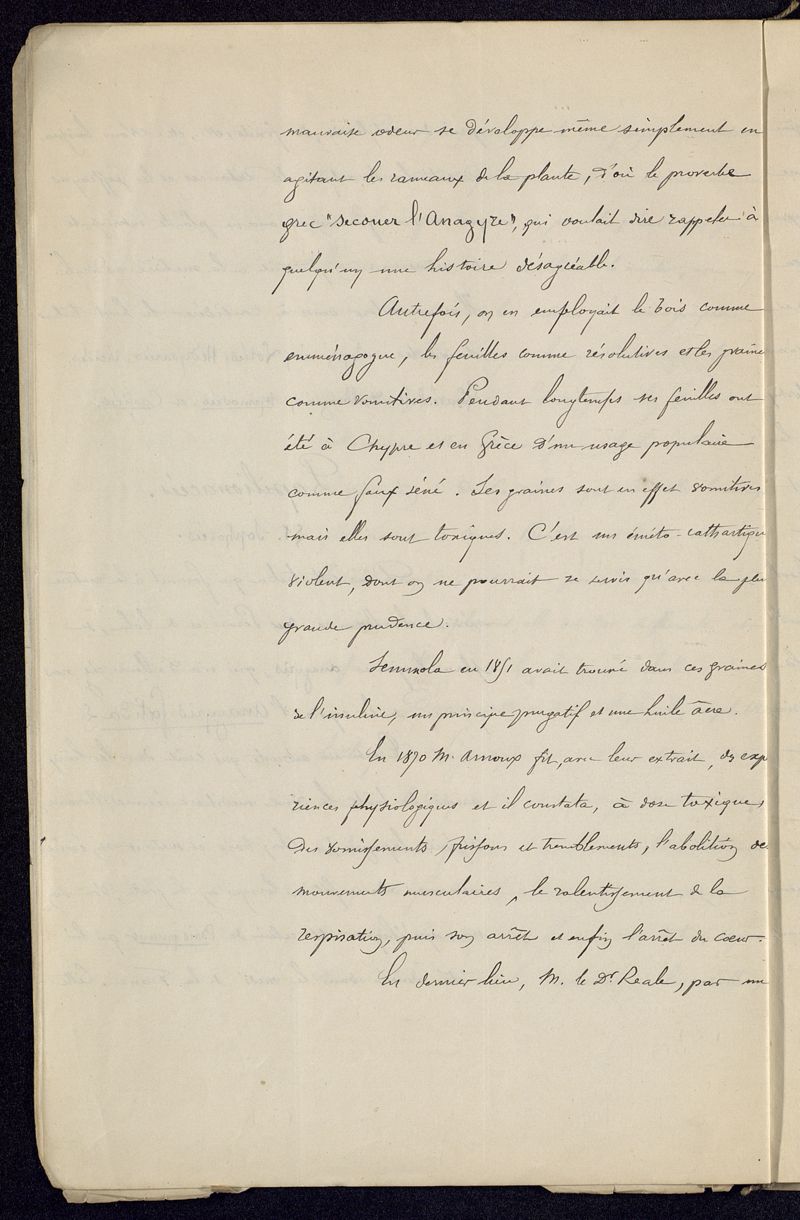 mauvaise odeur se développe même simplement en
agitant les rameaux de la plante, d'où le proverbe
grec "secouer l'Anagyre", qui voulait dire rappeler à
quelqu'un une histoire désagréable.
Autrefois, on en employait le bois comme
emménagogue, les feuilles comme résolutives et les graine
comme vomitives. Pendant longtemps ses feuilles ont
été à Chypre et en Grèce d'un usage populaire
comme faux séné. Ses graines sont en effet vomitives
mais elles sont toxiques. C'est un éméto-cathartique
violent, dont on ne pourrait se servir qu'avec la plu
grande prudence.
Semmola en 1851 avait trouvé dans ces graines
de l'inuline, un principe purgatif et une huile âcre.
En 1870 M. Arnoux fit, avec leur extrait, des exp
riences physiologiques et il constata, à dose toxique,
des vomissements, frissons et tremblements, l'abolition de
mouvements musculaires, le ralentissement de la
respiration, puis son arrêt et enfin l'arrêt du cœur.
En dernier lieu, M. le Dr Reale, par un